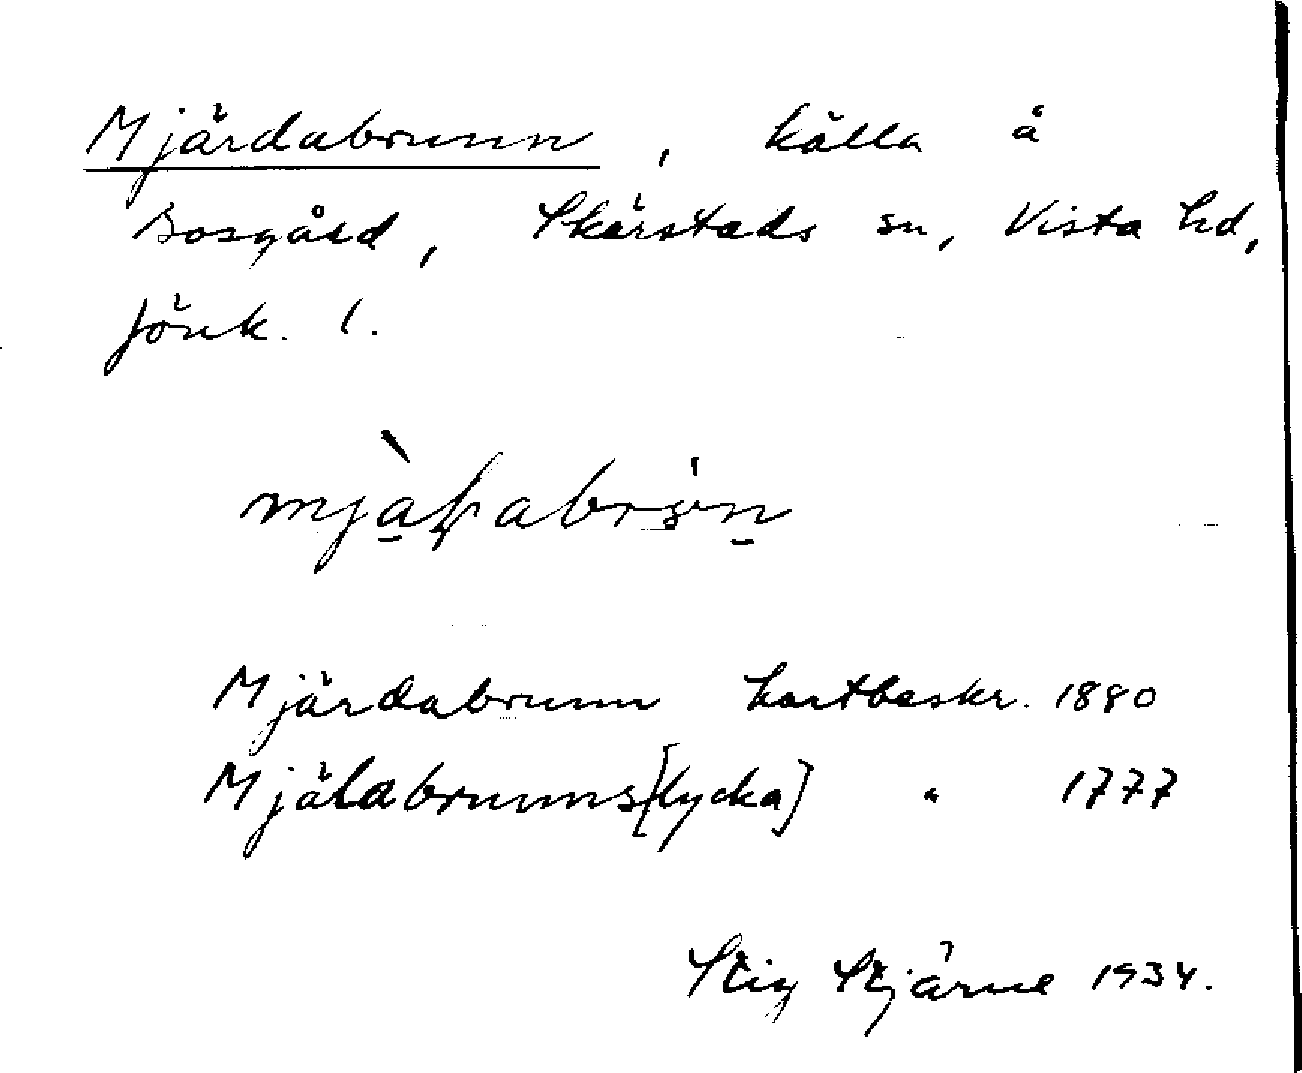 Mjärdabrunn, källa å
Bosgård, Skärstads sn, Vista hd,
Jönk. l.
Mjärdabrunn kartbeskr. 1880
Mjälabrunns[lycka] " 1777
Stig Stjärne 1934.